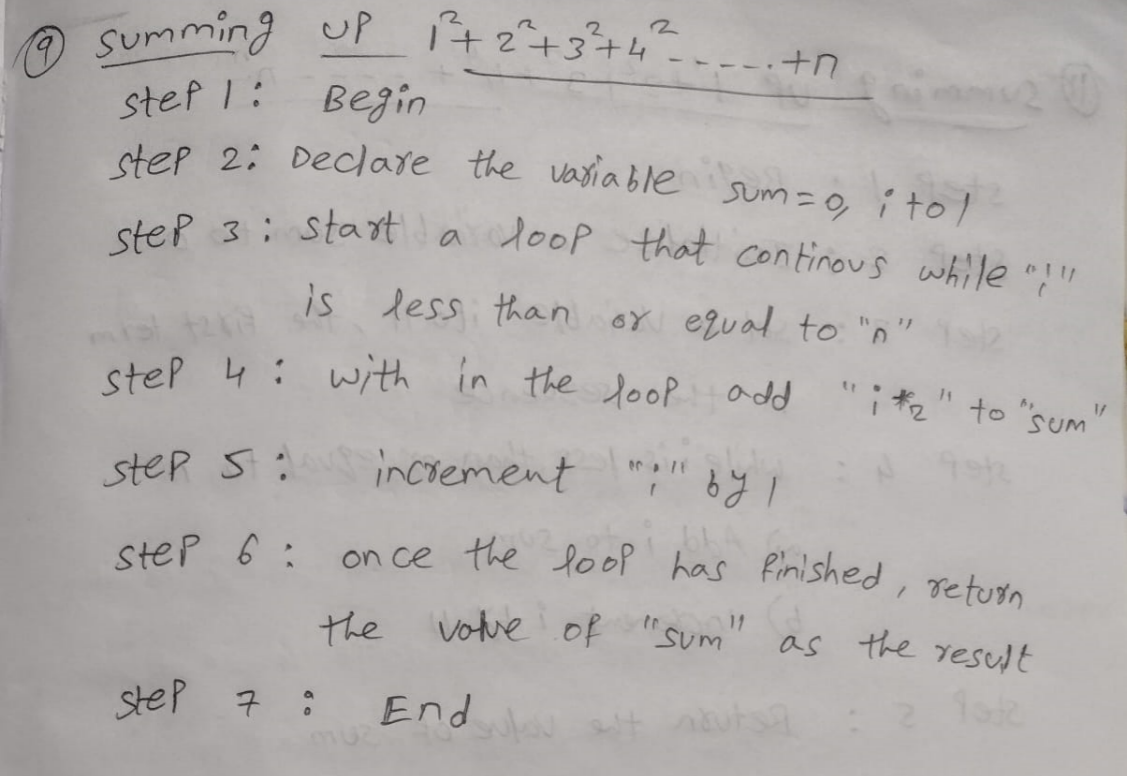 9 summing up 1²+2²+3²+4²------+n
step 1: Begin
step 2: Declare the variable sum=0, i to 1
step 3: start a loop that continous while "i"
is less than or equal to "n"
step 4: with in the loop add "i*2" to "sum"
step 5: increment "i" by 1
step 6: once the loop has finished, return
the value of "sum" as the result
step 7: End